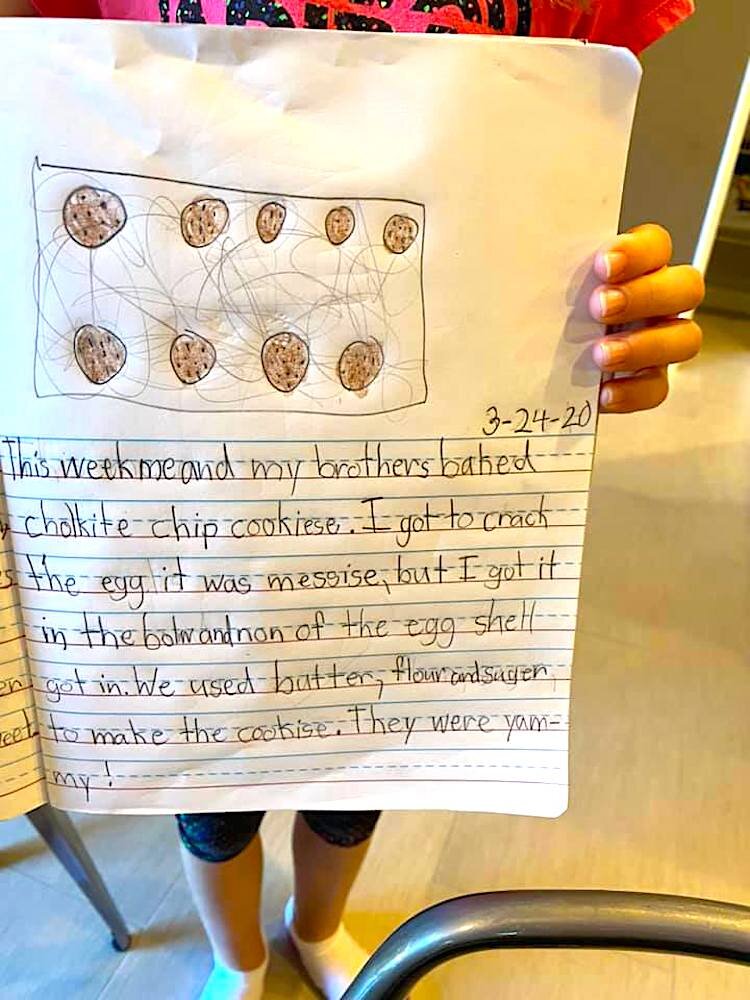 3-24-20
This week me and my brothers baked
cholkite chip cookiese. I got to crack
the egg it was messise, but I got it
in the bolw and non of the egg shell
got in. We used butter, flour and suger
to make the cookise. They were yam-
my!